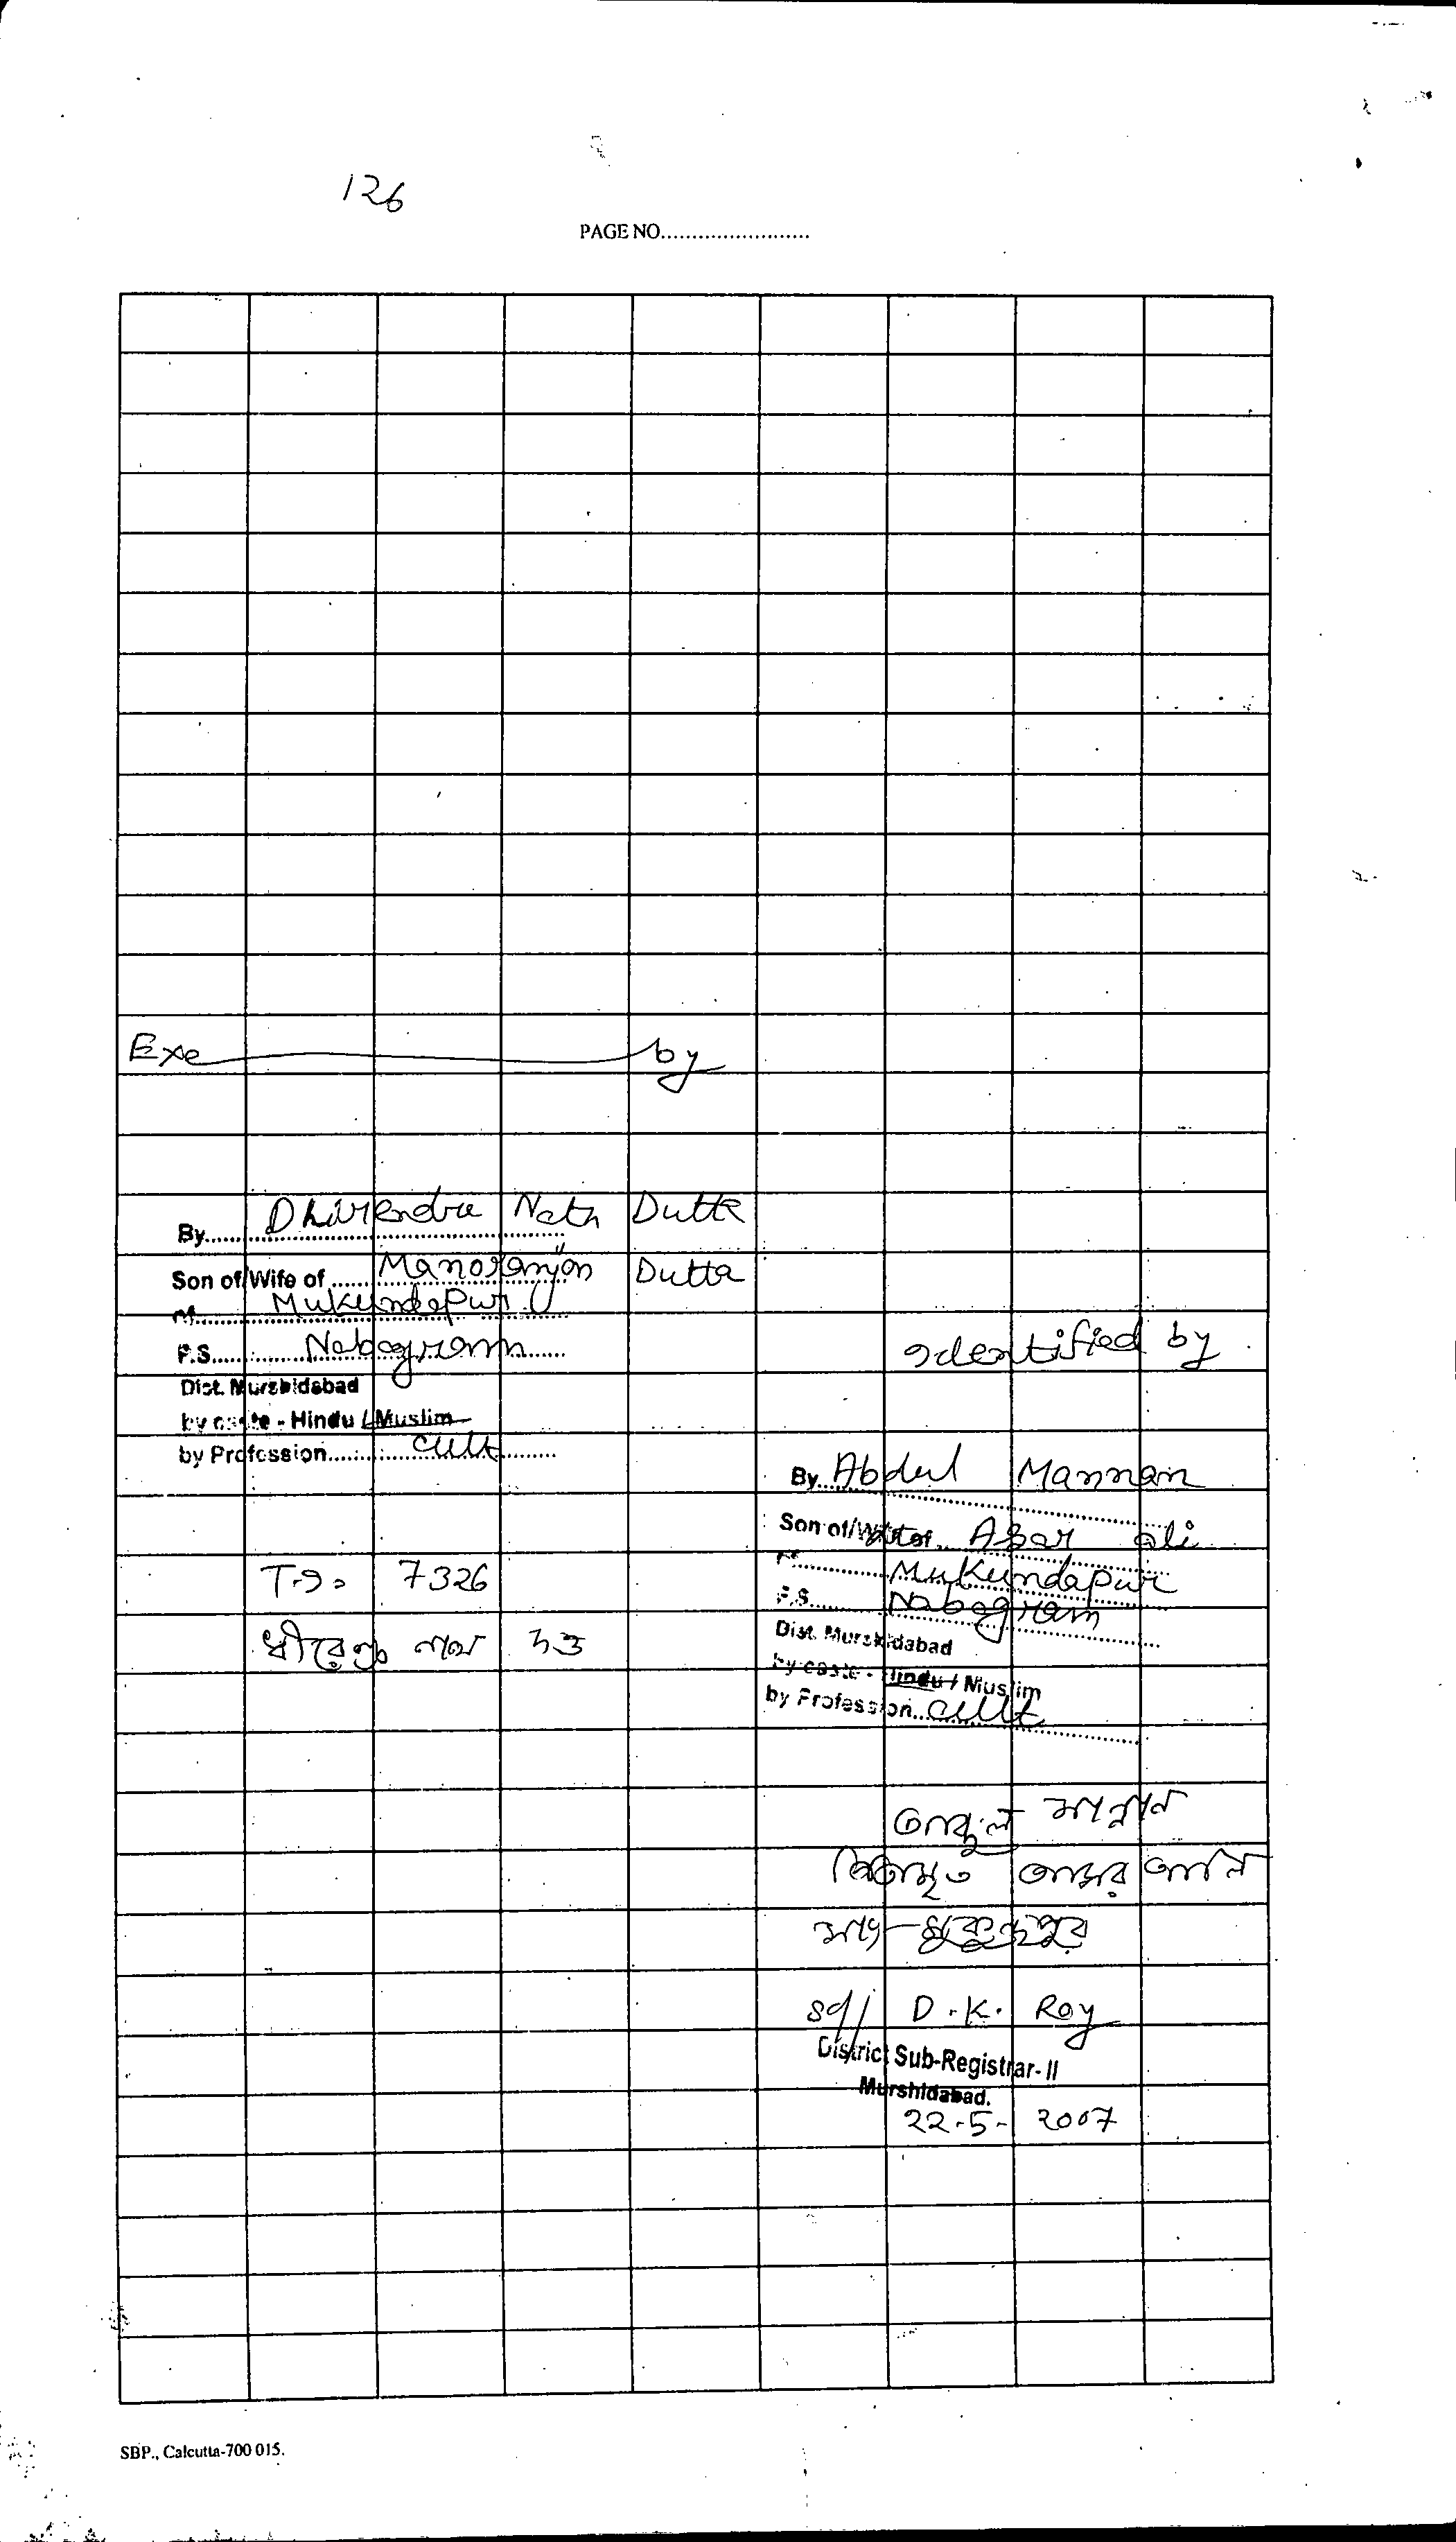 126
PAGE NO........................
Exe by
By Dhirendra Nath Dutta
Son of/Wife of Manoranjan Dutta
of Mukundapur
P.S. Nabagram
Dist. Murshidabad
by caste - Hindu / Muslim
by Profession cult
T.I. 7326
ধীরেন্দ্র নাথ দত্ত
Identified by
By Abdul Mannan
Son of/Wife of Ali
of Mukundapur
P.S. Nabagram
Dist. Murshidabad
by caste - Hindu / Muslim
by Profession cult
আব্দুল মান্নান
আলি
সাং-মুকুন্দপুর
Sd/ D.K. Roy
District Sub-Registrar-II
Murshidabad.
22-5-2007
SBP., Calcutta-700 015.